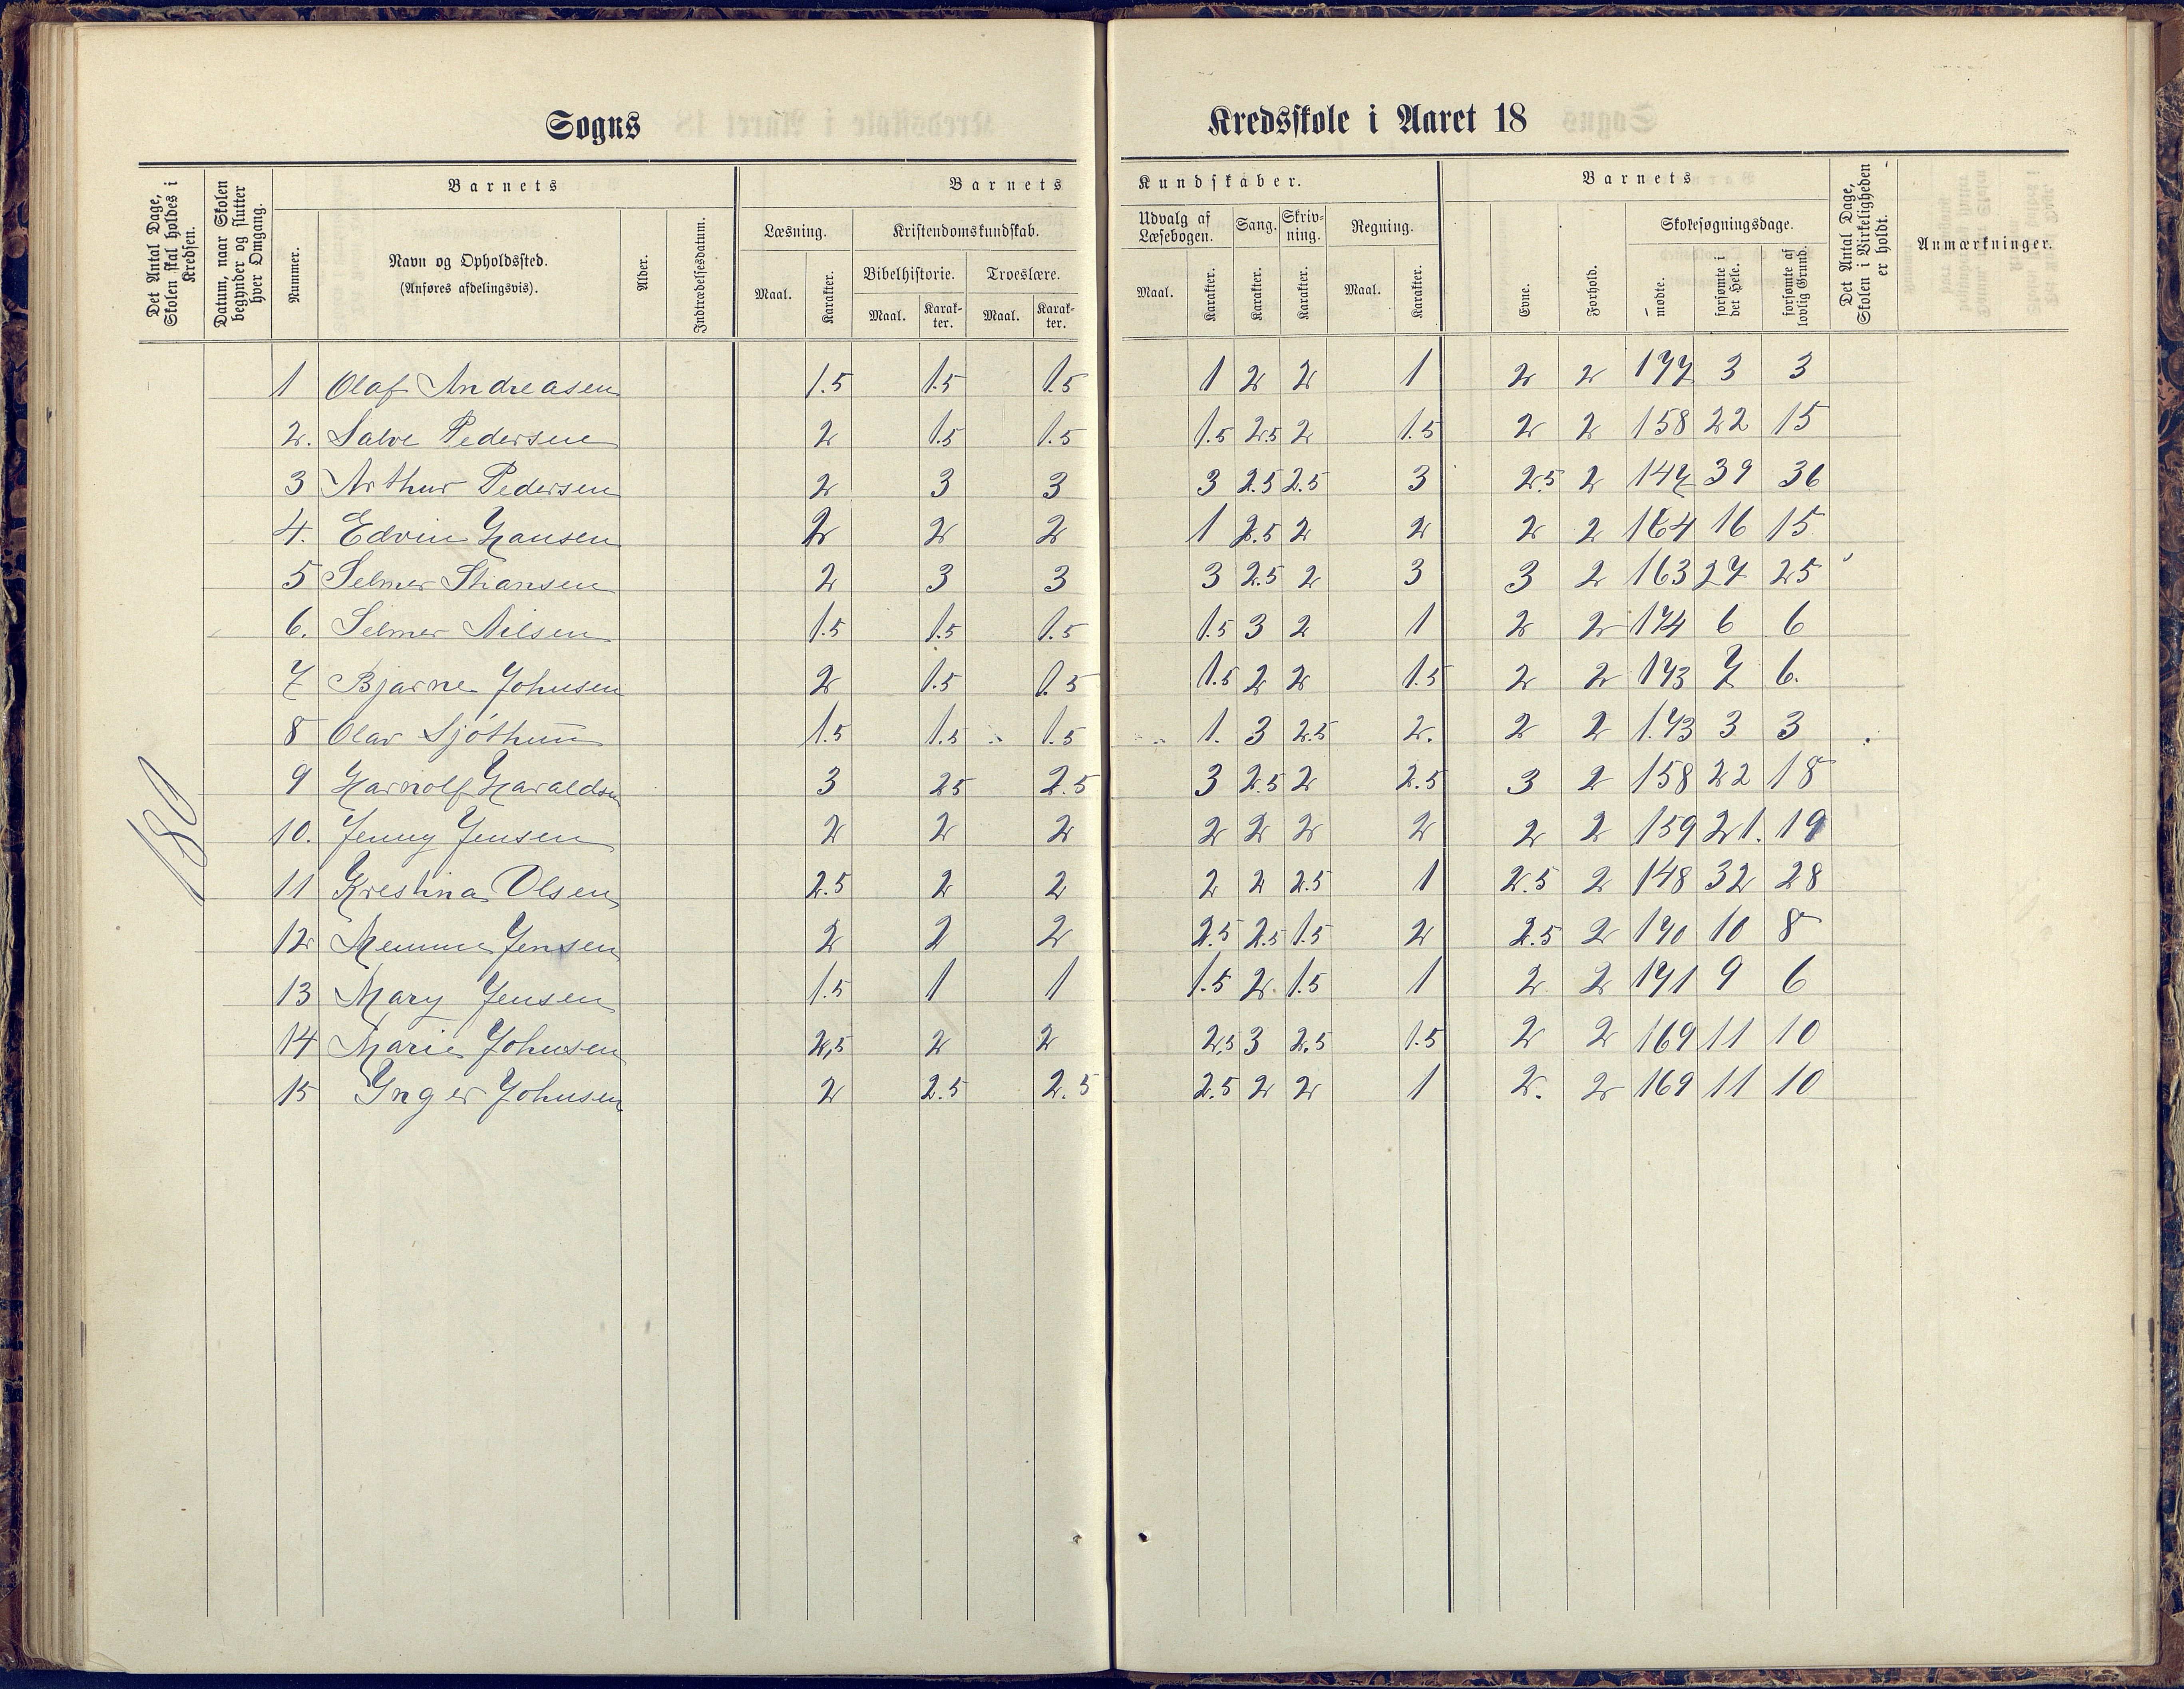 Sogns Kredsskole i Aaret 18
Det Antal Dage, Skolen skal holdes i Kredsen.
Datum, naar Skolen begynder og slutter hver Omgang.
Barnets
Nummer.
Navn og Opholdssted.
(Anføres afdelingsvis).
Alder.
Indtrædelsesdatum.
Barnets Kundskaber.
Læsning.
Maal. Karakter.
Kristendomskundskab.
Bibelhistorie. Troeslære.
Maal. Karakter. Maal. Karakter.
Udvalg af Læsebogen. Sang. Skrivning. Regning.
Maal. Karakter. Karakter. Karakter. Maal. Karakter.
Barnets
Evne. Forhold.
Skolesøgningsdage.
mødte. forsømte i det Hele. forsømte af lovlig Grund.
Det Antal Dage, Skolen i Virkeligheden er holdt.
Anmærkninger.
180
1 Olaf Andreasen 1.5 1.5 1.5 1 2 2 1 2 2 177 3 3
2. Salve Pedersen 2 1.5 1.5 1.5 2.5 2 1.5 2 2 158 22 15
3 Arthur Pedersen 2 3 3 3 2.5 2.5 3 2.5 2 147 39 36
4. Edvin Hansen 2 2 2 1 2.5 2 2 2 2 164 16 15
5 Selmer 2 3 3 3 2.5 2 3 3 2 163 27 25
6. Selmer Nilsen 1.5 1.5 1.5 1.5 3 2 1 2 2 174 6 6
7 Bjarne Johnsen 2 1.5 1.5 1.5 2 2 1.5 2 2 173 7 6.
8 Olav 1.5 1.5 1.5 1. 3 2.5 2. 2 2 173 3 3
9 Haraldsen 3 25 2.5 3 2.5 2 2.5 3 2 158 22 18
10. Jenny Jensen 2 2 2 2 2 2 2 2 2 159 21. 19
11 Krestina Olsen 2.5 2 2 2 2 2.5 1 2.5 2 148 32 28
12 Jensen 2 2 2 2.5 2.5 1.5 2 2.5 2 170 10 8
13 Mary Jensen 1.5 1 1 1.5 2 1.5 1 2 2 171 9 6
14 Marie Johnsen 2,5 2 2 2,5 3 2.5 1.5 2 2 169 11 10
15 Ynger Johnsen 2 2.5 2.5 2.5 2 2 1 2. 2 169 11 10